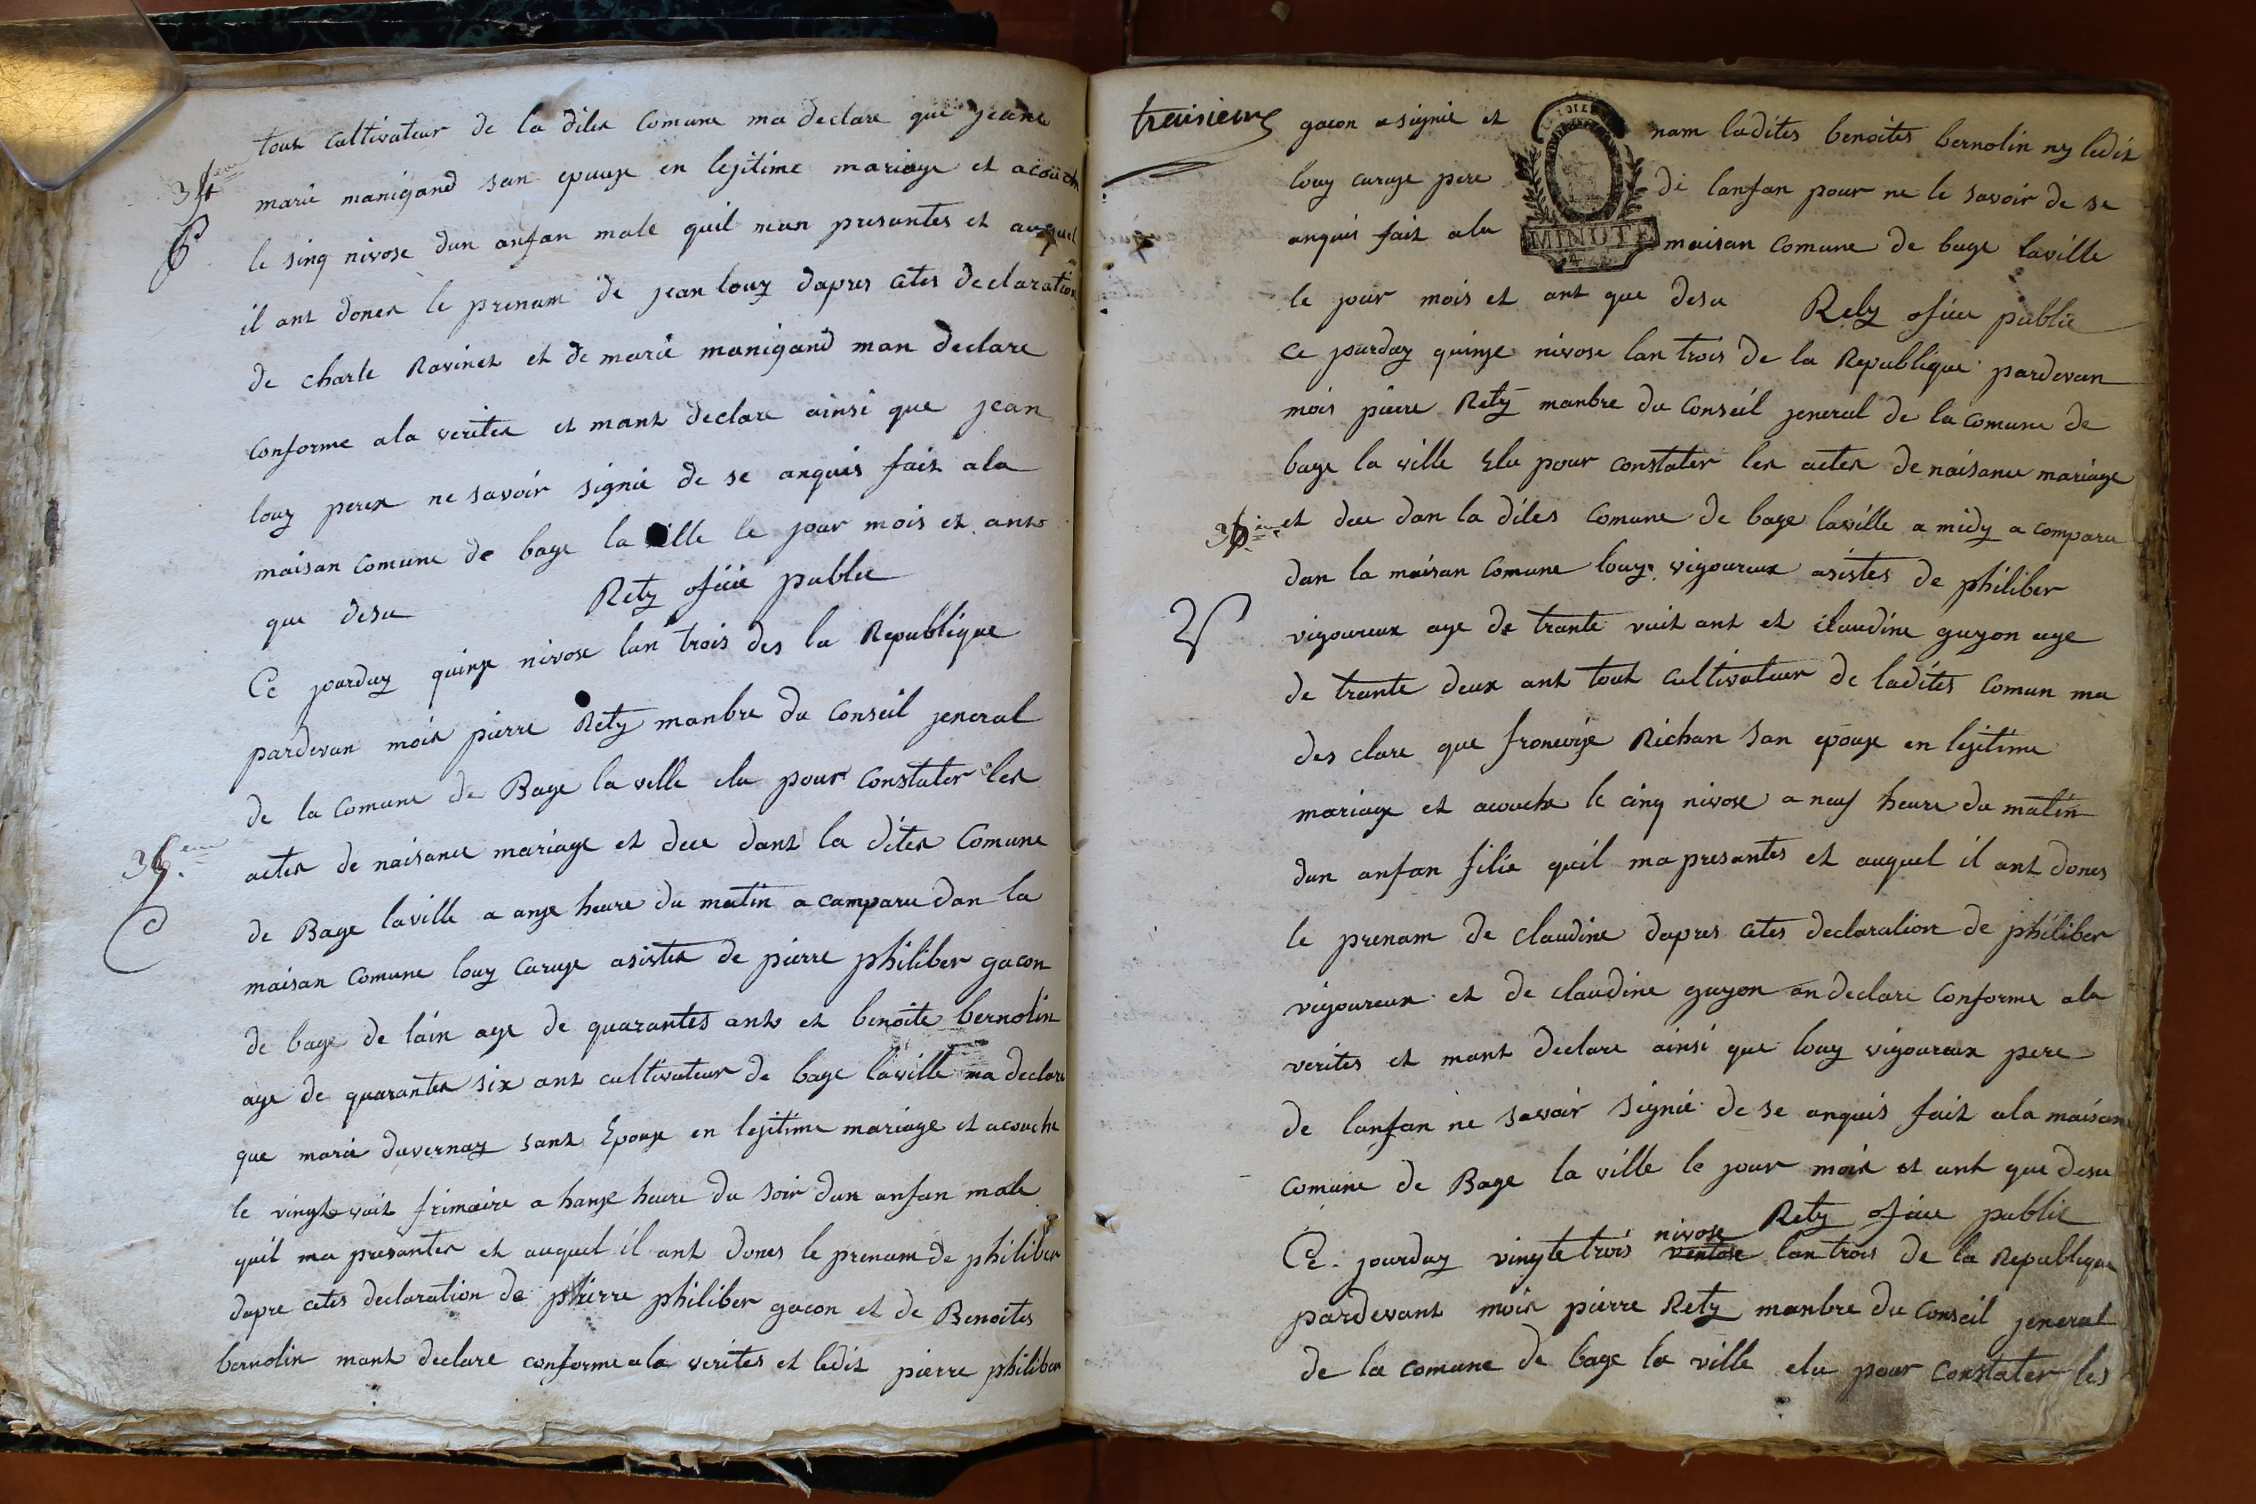 tout cultivateur de la dites Comune ma declare que jeane
34eme
marie manigand san epouze en lejitime mariage et acouch
le sinq nivose dun anfan male quil man presantes et auquel
il ant doner le prenam de jean louy dapres cetes declaration
de charle Ravinet et de marie manigand man declare
Conforme ala verites et mant declare ainsi que jean
louy peres ne savoir signié de se anquis fait ala
maisan Comune de bage la ville le jour mois et ants
que desu Rety ofiié public
Ce jourduy quinze nivose lan trois des la Republique
pardevan mois pierre Rety manbre du Conseil jeneral
de la Comune de Bage la ville elu pour Constater les
35.eme
actes de naisance mariage et dece dant la dites Comune
de Bage laville a anze heure du matin a camparu dan la
maisan Comune louy caruge asistes de pierre philiber gacon
de bage de lain age de quarantes ants et benoite bernolin
age de quarantes six ant cultivateur de bage laville ma declare
que marie duvernay sant Epouze en lejitime mariage et acouche
le vingt vuit frimaire a hanze heure du soir dun anfan male
quil ma presantes et auquel il ant dones le prenam de philiber
dapre cetes declaration de phierre philiber gacon et de Benoites
bernolin mant declare conforme ala verites et ledit pierre philiber
treisieme
gacon a signié et nam ladites benoites bernolin ny ledit
louy caruge pere de lanfan pour ne le savoir de se
anquis fait ala maisan Comune de bage laville
MINUTE
le jour mois et ant que desu Rety ofiie public
Ce jourduy quinze nivose lan trois de la Republique pardevan
mois pierre Rety manbre du Conseil jeneral de la Comune de
bage la ville Elu pour constater les actes de naisance mariage
36eme
et dece dan la dites Comune de bage laville a midy a comparu
dan la maisan Comune louy vigoureux asistes de philiber
vigoureux age de trante vuit ant et claudine guyon age
de trante deux ant tout cultivateur de ladites Comun ma
des clare que franceoize Richan san epouze en lejitime
mariage et acouche le cinq nivose a neuf heure du matin
dun anfan filie quil ma presantes et auquel il ant dones
le prenam de claudine dapres cetes declaration de philiber
vigoureux et de claudine guyon an declare Conforme ala
verites et mant declare ainsi que louy vigoureux pere
de lanfan ne savoir signié de se anquis fait ala maisan
Comune de Bage la ville le jour mois et ant que desu
Rety ofiie public
nivose
Ce jourduy vingte trois ventose lan trois de la Republique
pardevant mois pierre Rety manbre du Conseil jeneral
de la comune de bage la ville elu pour Constater les